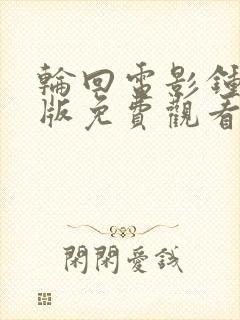 輪回電影鍾
版免費觀看
閑閑愛錢